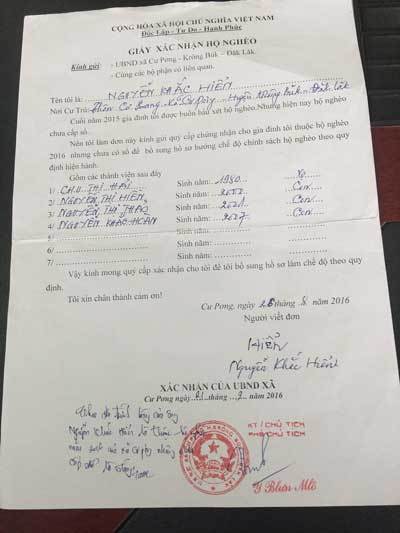 CỘNG HÒA XÃ HỘI CHỦ NGHĨA VIỆT NAM
Độc Lập - Tự Do - Hạnh Phúc
GIẤY XÁC NHẬN HỘ NGHÈO
Kính gửi: - UBND xã Cư Pơng - Krông Búk – Đăk Lăk.
- Cùng các bộ phận có liên quan.
Tên tôi là: NGUYỄN KHẮC HIỂN
Nơi Cư Trú: Thôn Cư Bang - Xã Cư Pơng - Huyện Krông Búk - Đăk Lăk
Cuối năm 2015 gia đình tôi được buôn bầu xét hộ nghèo. Nhưng hiện nay hộ nghèo
chưa cấp sổ.
Nên tôi làm đơn này kính gửi quý cấp chứng nhận cho gia đình tôi thuộc hộ nghèo
2016 nhưng chưa có sổ để bổ sung hồ sơ hưởng chế độ chính sách hộ nghèo theo quy
định hiện hành.
Gồm các thành viên sau đây
1/ CHU THỊ HẢI Sinh năm: 1980 Vợ
2/ NGUYỄN THỊ HIỀN Sinh năm: 2000 Con
3/ NGUYỄN THỊ THẢO Sinh năm: 2001 Con
4/ NGUYỄN KHẮC HOAN Sinh năm: 2007 Con
5/ Sinh năm:
6/ Sinh năm:
7/ Sinh năm:
Vậy kính mong quý cấp xác nhận cho tôi để tôi bổ sung hồ sơ làm chế độ theo quy
định.
Tôi xin chân thành cảm ơn!
Cư Pơng, ngày 28 tháng 8 năm 2016
Người viết đơn
HIỂN
Nguyễn Khắc Hiển
XÁC NHẬN CỦA UBND XÃ
Cư Pơng ngày 01 tháng 9 năm 2016
Nguyễn Khắc Hiển là
KT/CHỦ TỊCH
PHÓ CHỦ TỊCH
Y Blun Mlô